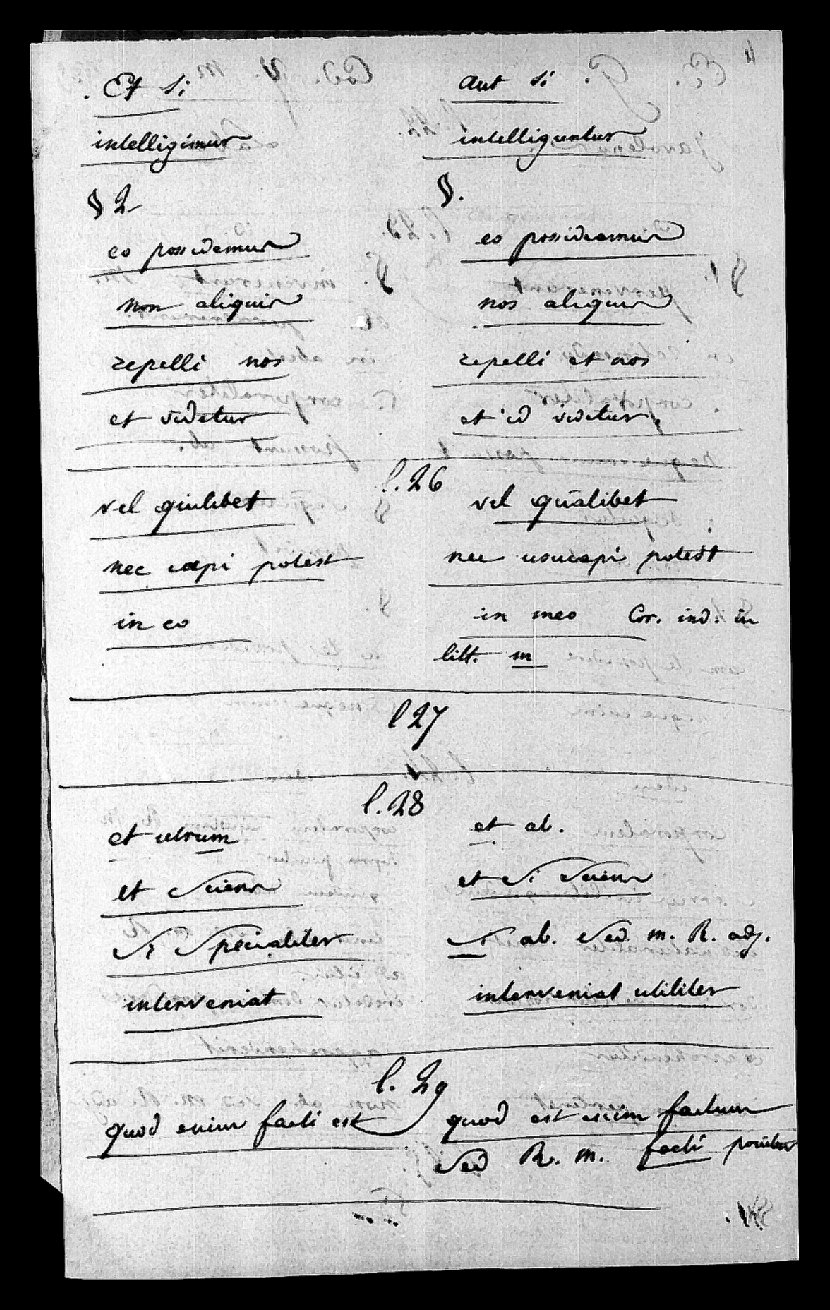 Et si aut si
intelligimur intelliguntur
§ 2 §.
eo possidemur eo possideamur
non aliquis nos aliquis
repelli nos repelli et nos
et videtur et id videtur.
l. 26
vel quilibet vel qualibet
nec capi potest nec usucapi potest
in eo in meo Cor. ind. in
litt. m
l 27
l. 28
et utrum et ab.
et sciens et si sciens
si specialiter si ab. sed m. R. adj.
interveniat interveniat utiliter
l. 29
quod enim facti est quod est enim factum
sed R. m. facti